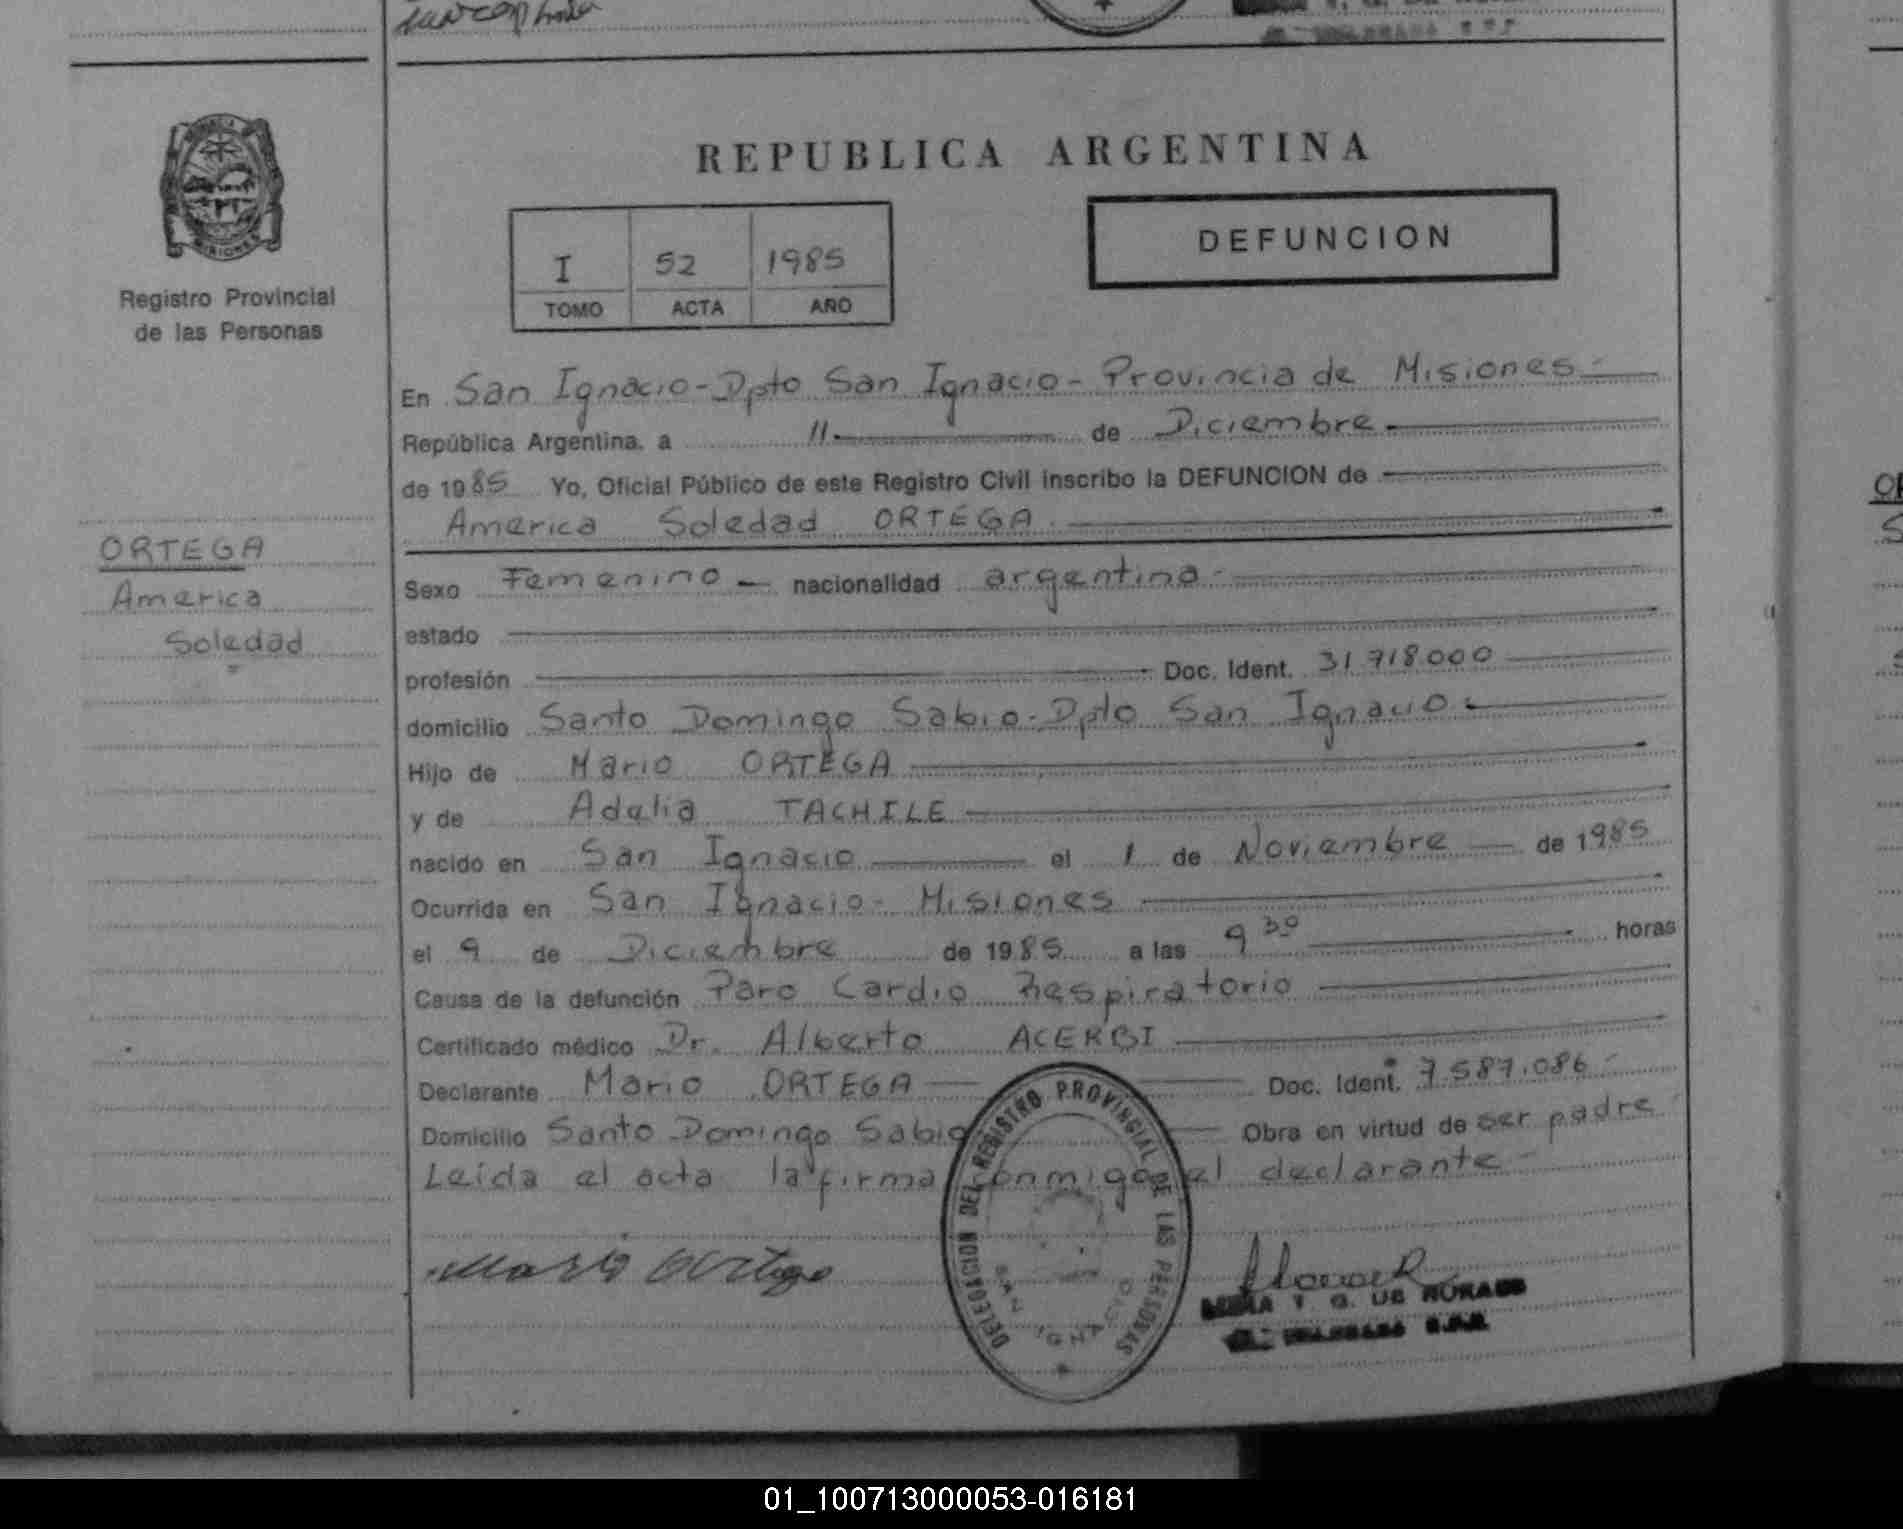 REPUBLICA ARGENTINA
DEFUNCION
I 52 1985
TOMO ACTA AÑO
Registro Provincial
de las Personas
ORTEGA
America
Soledad
En San Ignacio - Dpto San Ignacio - Provincia de Misiones -
República Argentina, a 11 de Diciembre
de 1985 Yo, Oficial Público de este Registro Civil inscribo la DEFUNCION de
America Soledad ORTEGA
Sexo Femenino nacionalidad argentina
estado
profesión Doc. Ident. 31.718.000
domicilio Santo Domingo Sabio - Dpto San Ignacio
Hijo de Mario ORTEGA
y de Adelia TACHILE
nacido en San Ignacio el 1 de Noviembre de 1985
Ocurrida en San Ignacio - Misiones
el 9 de Diciembre de 1985 a las 9 30 horas
Causa de la defunción Paro Cardio Respiratorio
Certificado médico Dr. Alberto ACERBI
Declarante Mario ORTEGA Doc. Ident. 7.587.086
Domicilio Santo Domingo Sabio Obra en virtud de ser padre
Leída el acta la firma conmigo el declarante
Mario Ortega
DELEGACION DEL REGISTRO PROVINCIAL DE LAS PERSONAS
SAN IGNACIO
T. G. DE
01_100713000053-016181